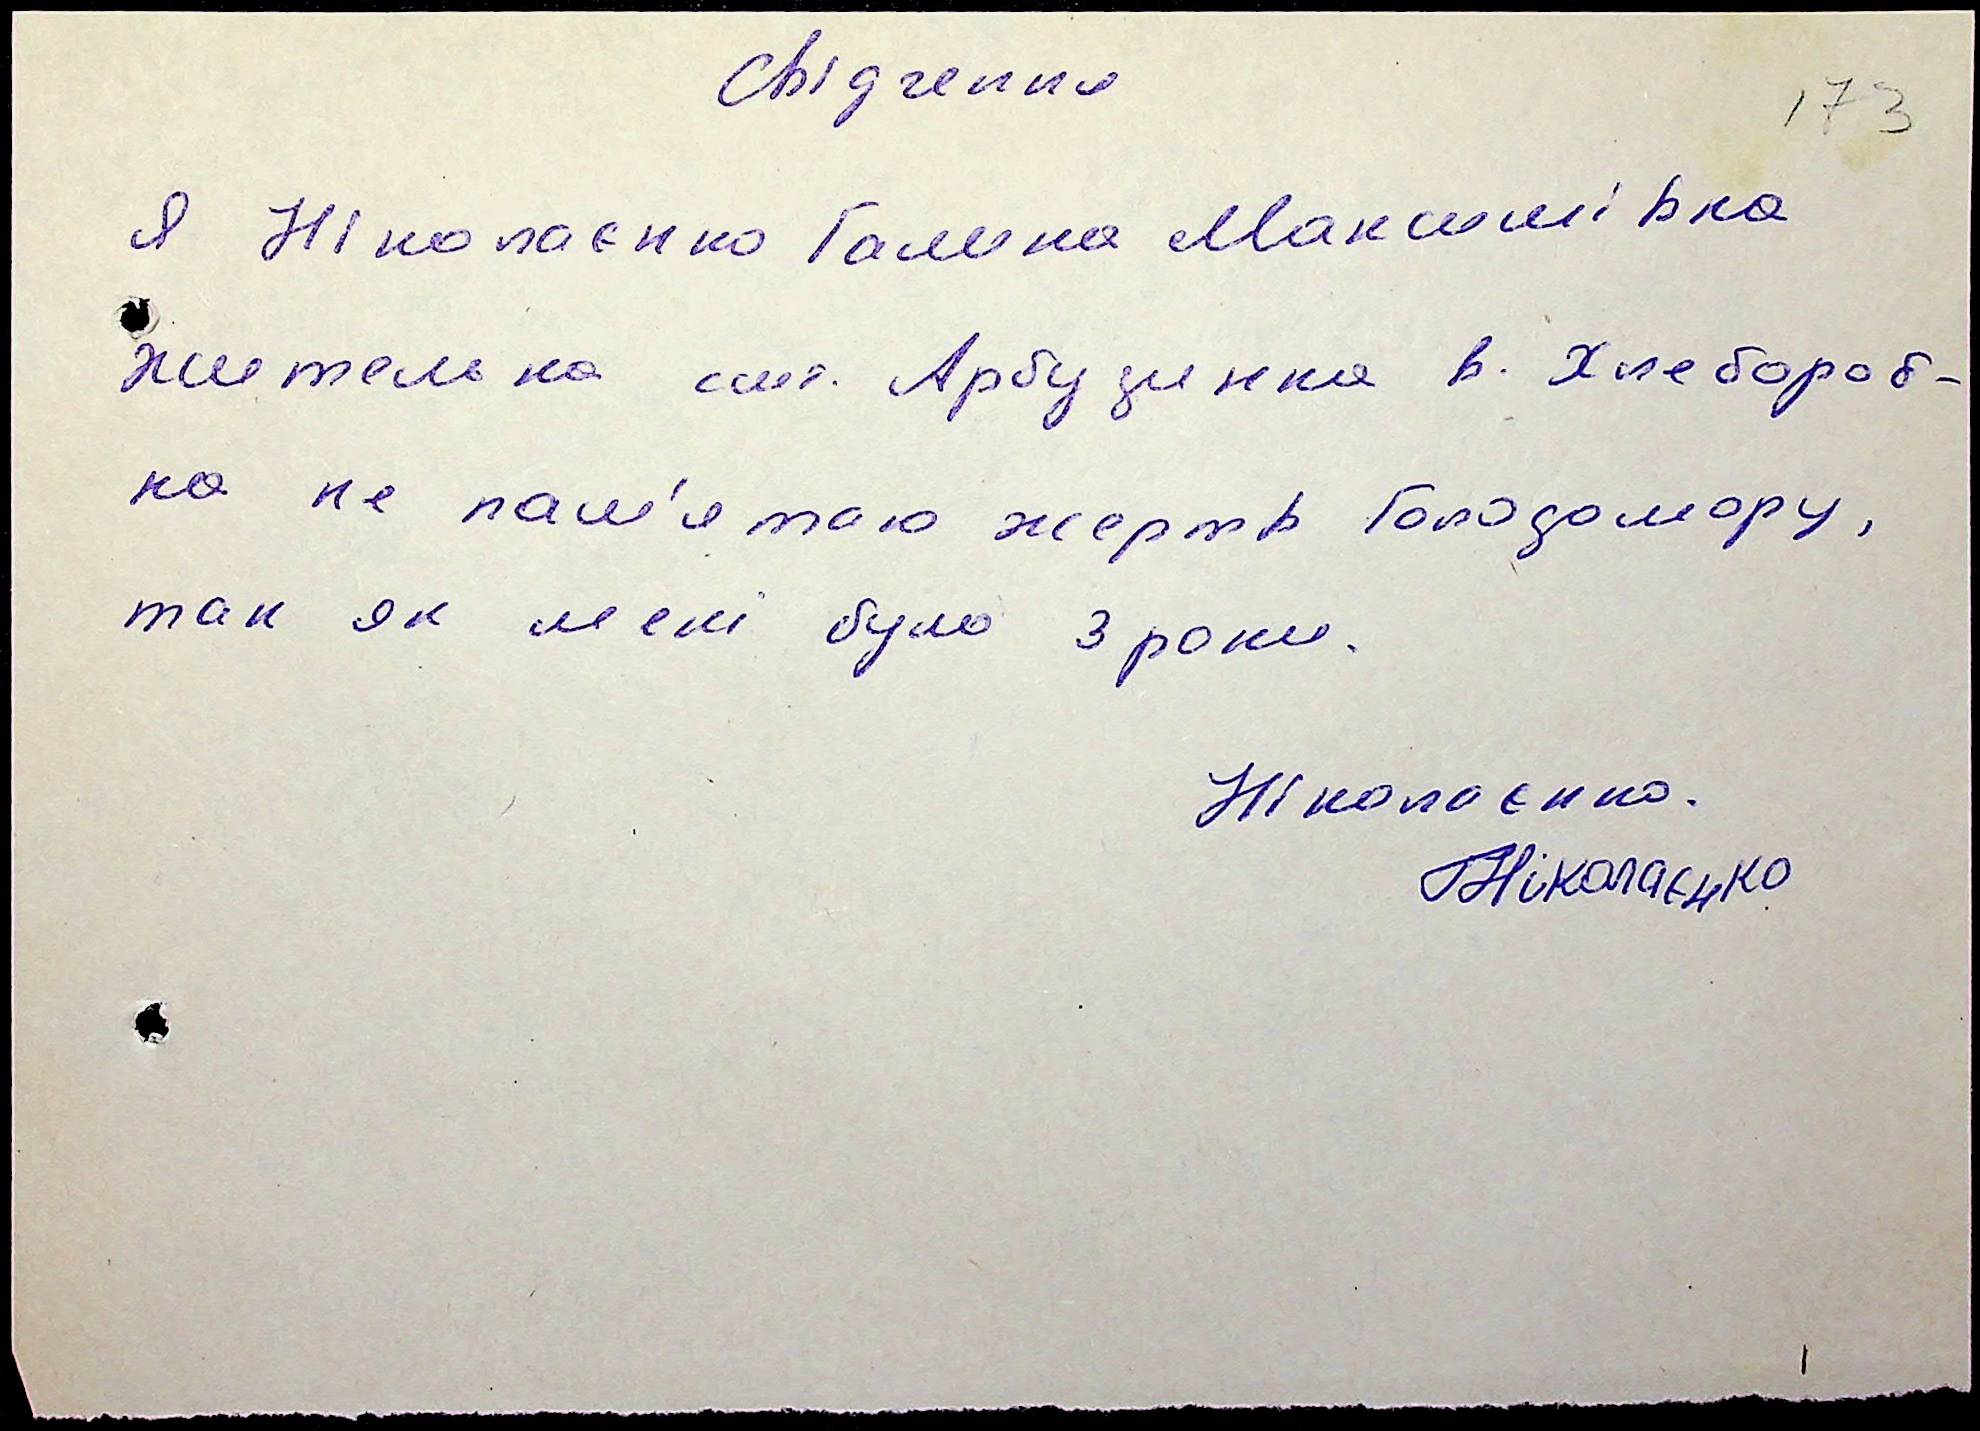 Свідчення
173
Я Ніколаєнко Галина Максимівна
жителька смт. Арбузинка в. Хлебороб-
на не пам'ятаю жертв Голодомору,
так як мені було 3 роки.
Ніколаєнко.
Ніколаєнко